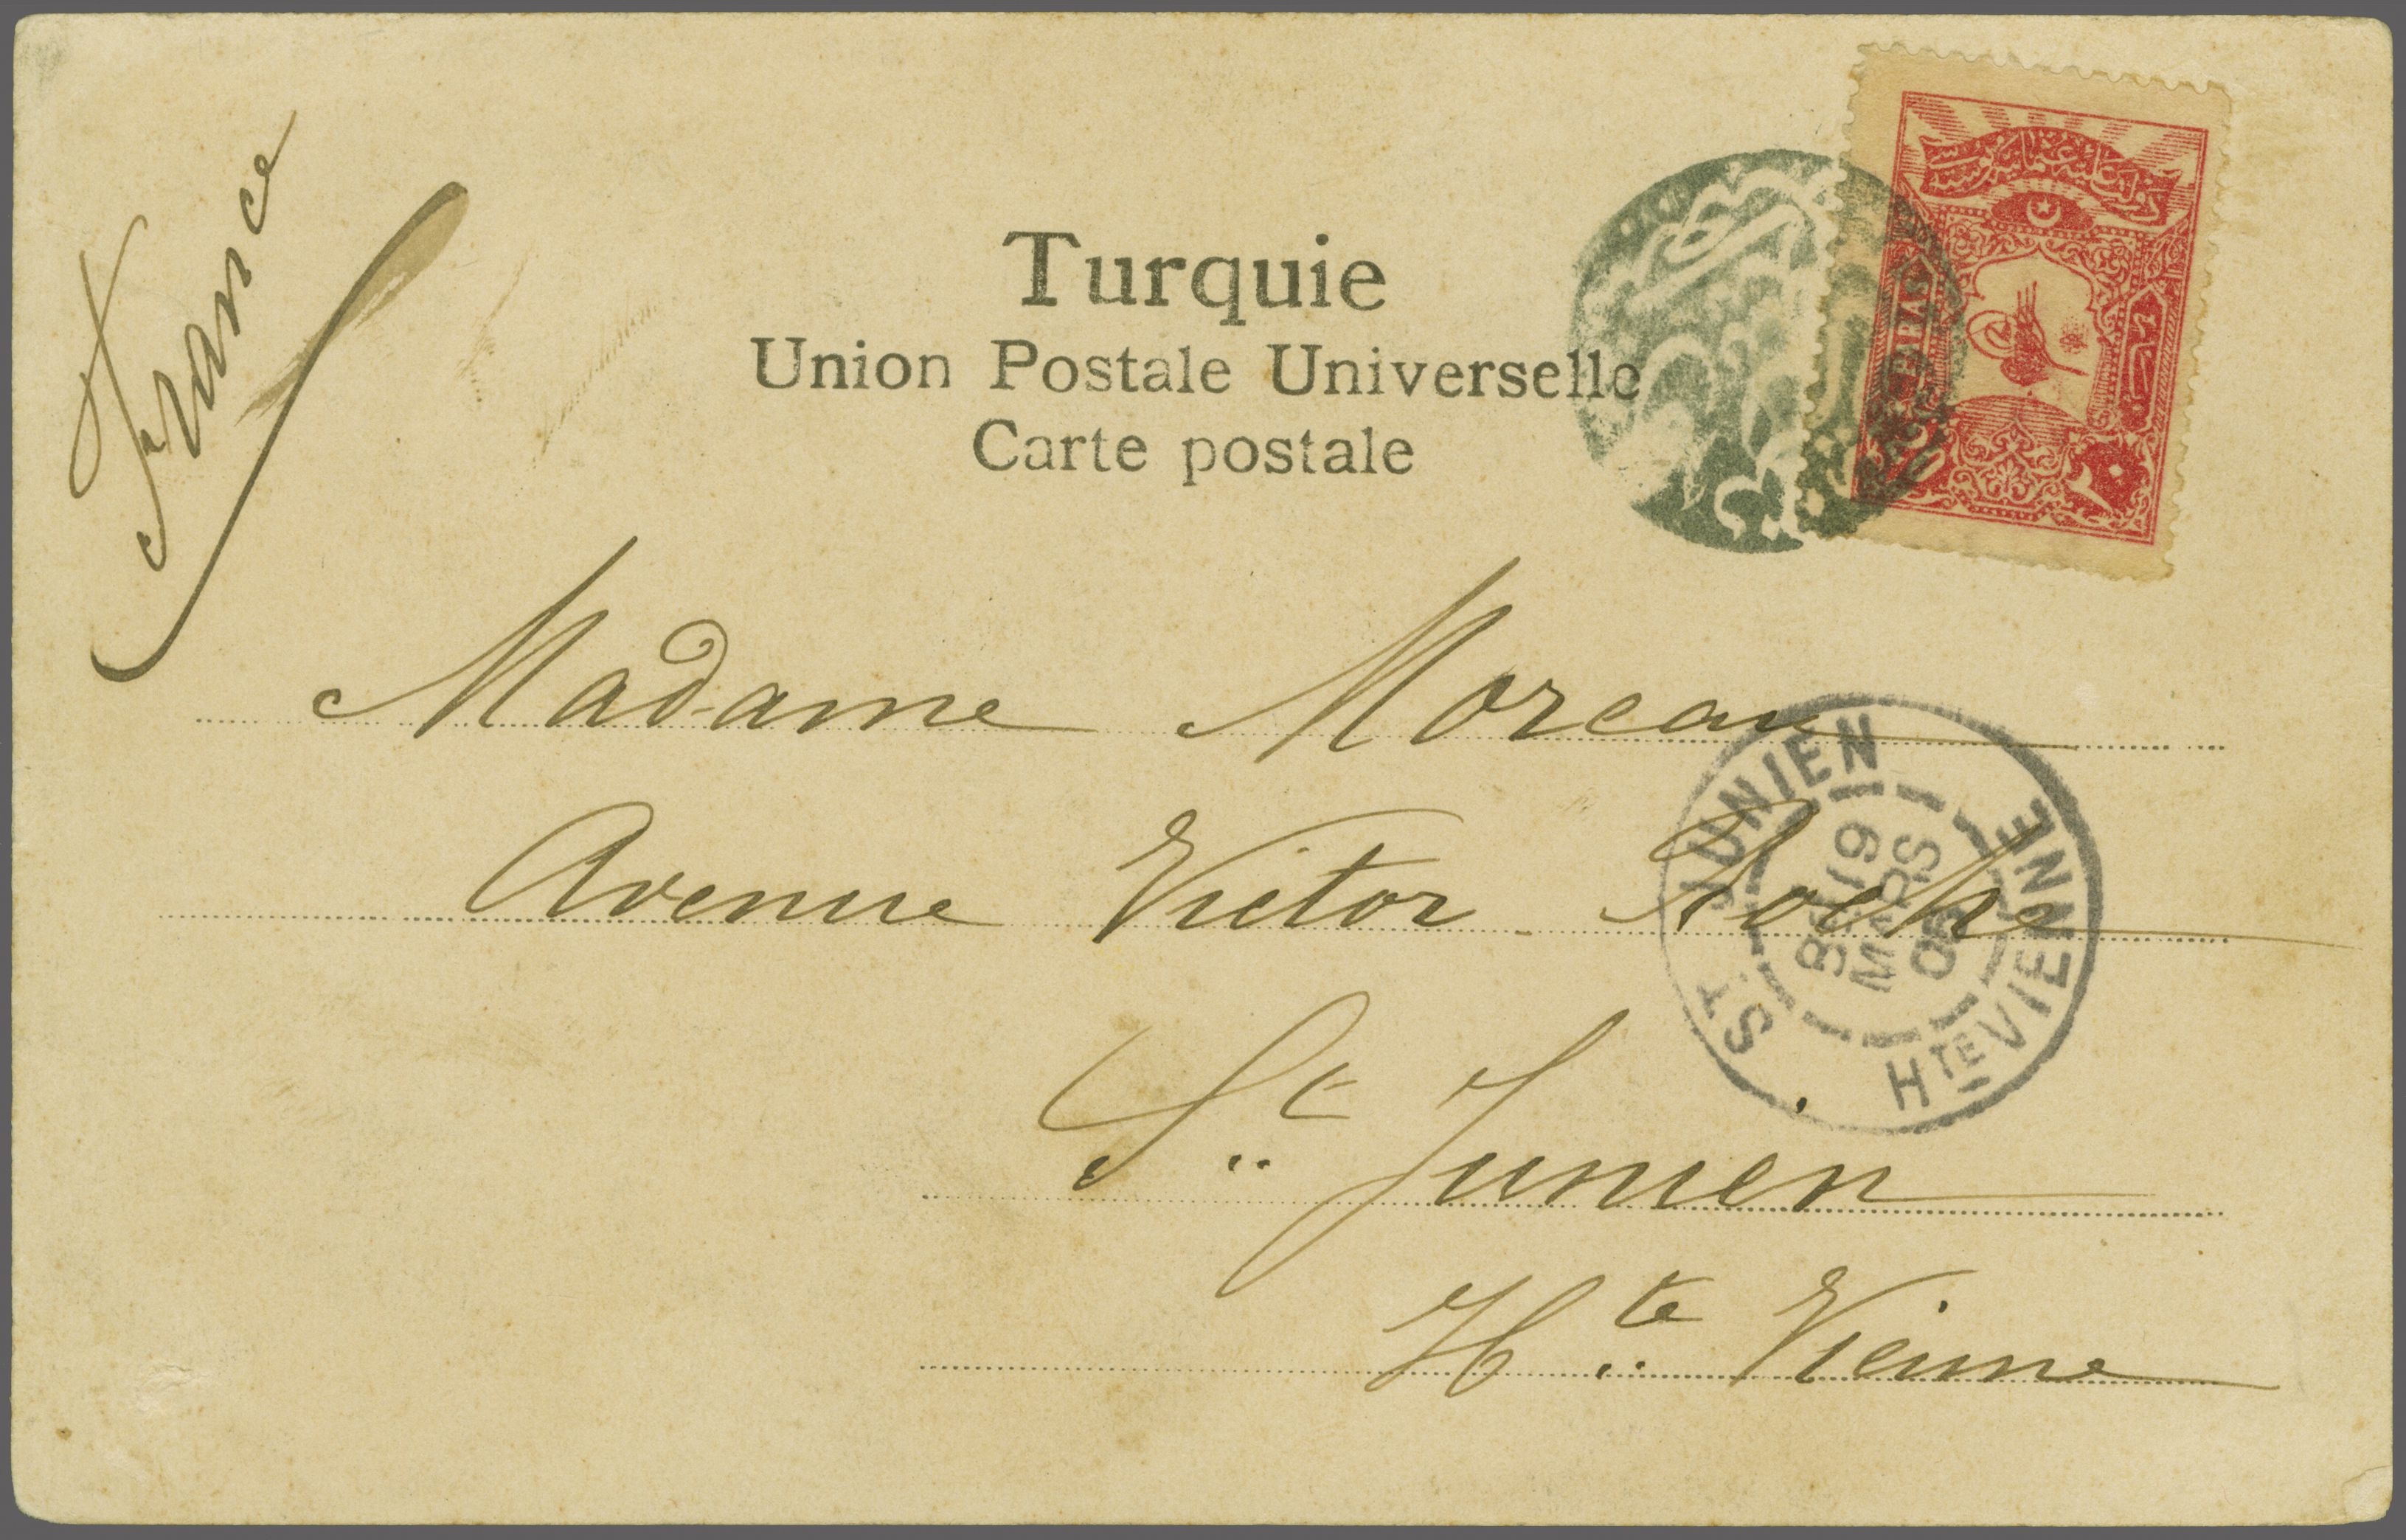 France
Turquie
Union Postale Universelle
Carte postale
20 PARAS
٢٠
Madame Moreau
Avenue Victor Roche
St Junien
Hte Vienne
ST JUNIEN
8 19
MARS
Hte VIENNE